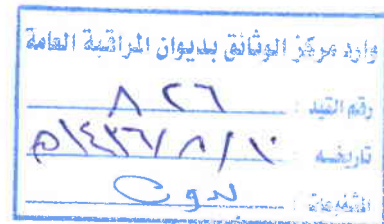 وارد مركز الوثائق بديوان المراقبة العامة
رقم القيد : ٨٢٦
تاريخه : ١٤٣٦/٨/١٠هـ
المشفوعات : بدون